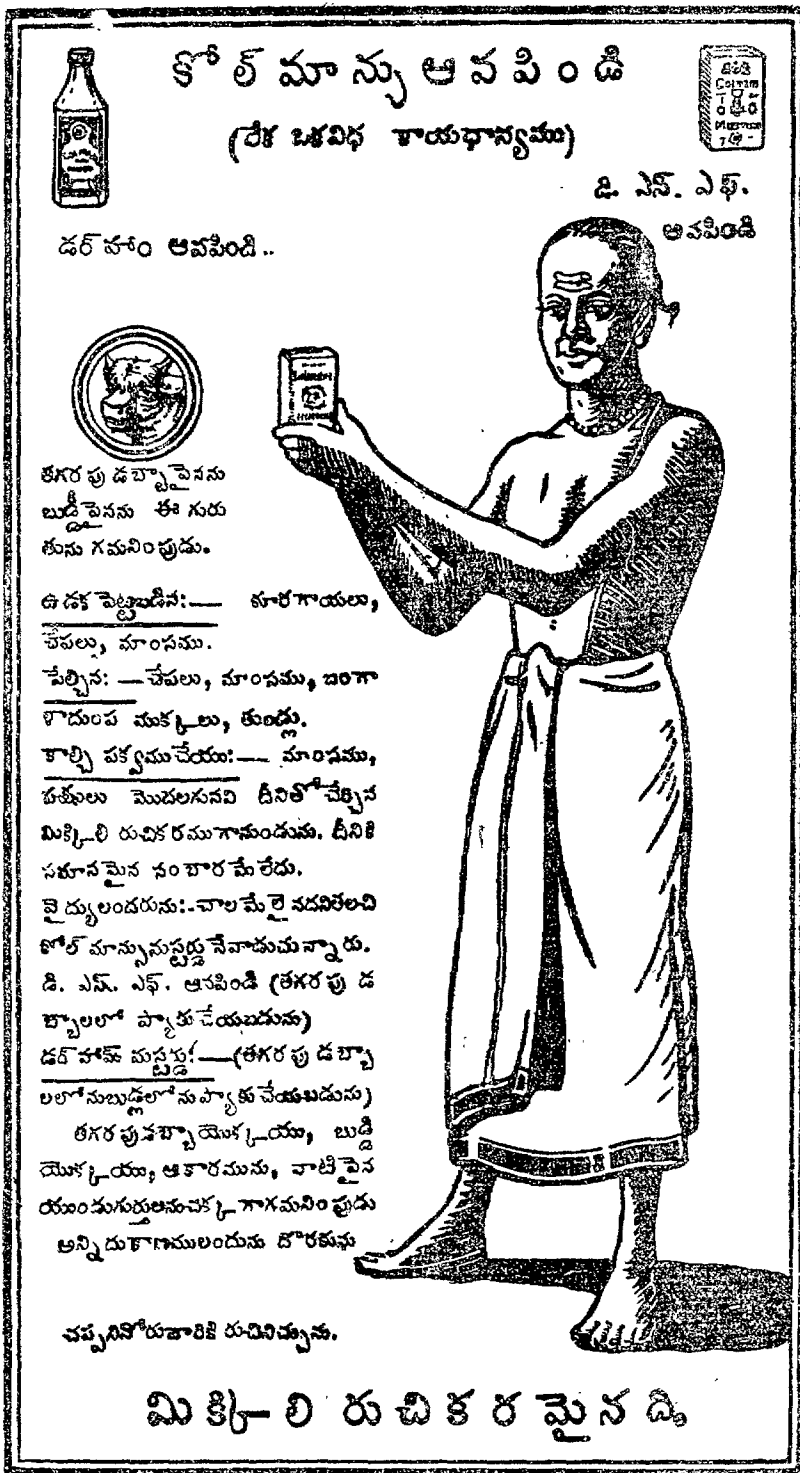 కోల్ మాన్సు ఆవపిండి
(లేక ఒకవిధ కాయధాన్యము)
డి. ఎన్. ఎఫ్.
ఆవపిండి
డర్ హాం ఆవపిండి..
తగరపు డబ్బాపైనను
బుడ్డీపైనను ఈ గురు
తును గమనింపుడు.
ఉడక పెట్టబడిన:— కూరగాయలు,
చేపలు, మాంసము.
పేల్చిన: —చేపలు, మాంసము, బంగా
ళాదుంప ముక్కలు, తుండ్లు.
కాల్చి పక్వముచేయు:— మాంసము,
పక్షులు మొదలగునవి దీనితోచేర్చిన
మిక్కిలి రుచికరముగానుండును. దీనికి
సమానమైన సంబారమేలేదు.
వైద్యులందరును:-చాలమేలైనదనితలచి
కోల్ మాన్సుమస్టర్డునేవాడుచున్నారు.
డి. ఎన్. ఎఫ్. ఆవపిండి (తగరపు డ
బ్బాలలో ప్యాకుచేయబడును)
డర్ హామ్ మస్టర్డు:—(తగరపు డబ్బా
లలోనుబుడ్లలోనుప్యాకుచేయబడును)
తగరపుడబ్బాయొక్కయు, బుడ్డి
యొక్కయు, ఆకారమును, వాటిపైన
యుండుగుర్తులనుచక్కగాగమనింపుడు
అన్నిదుకాణములందును దొరకును
చప్పనినోరువారికి రుచినిచ్చును.
మిక్కిలి రుచికరమైనది